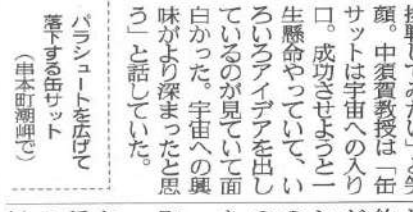 顔。中須賀教授は「缶
サットは宇宙への入り
口。成功させようと一
生懸命やっていて、い
ろいろアイデアを出し
ているのが見ていて面
白かった。宇宙への興
味がより深まったと思
う」と話していた。
パラシュートを広げて
落下する缶サット
(串本町潮岬で)